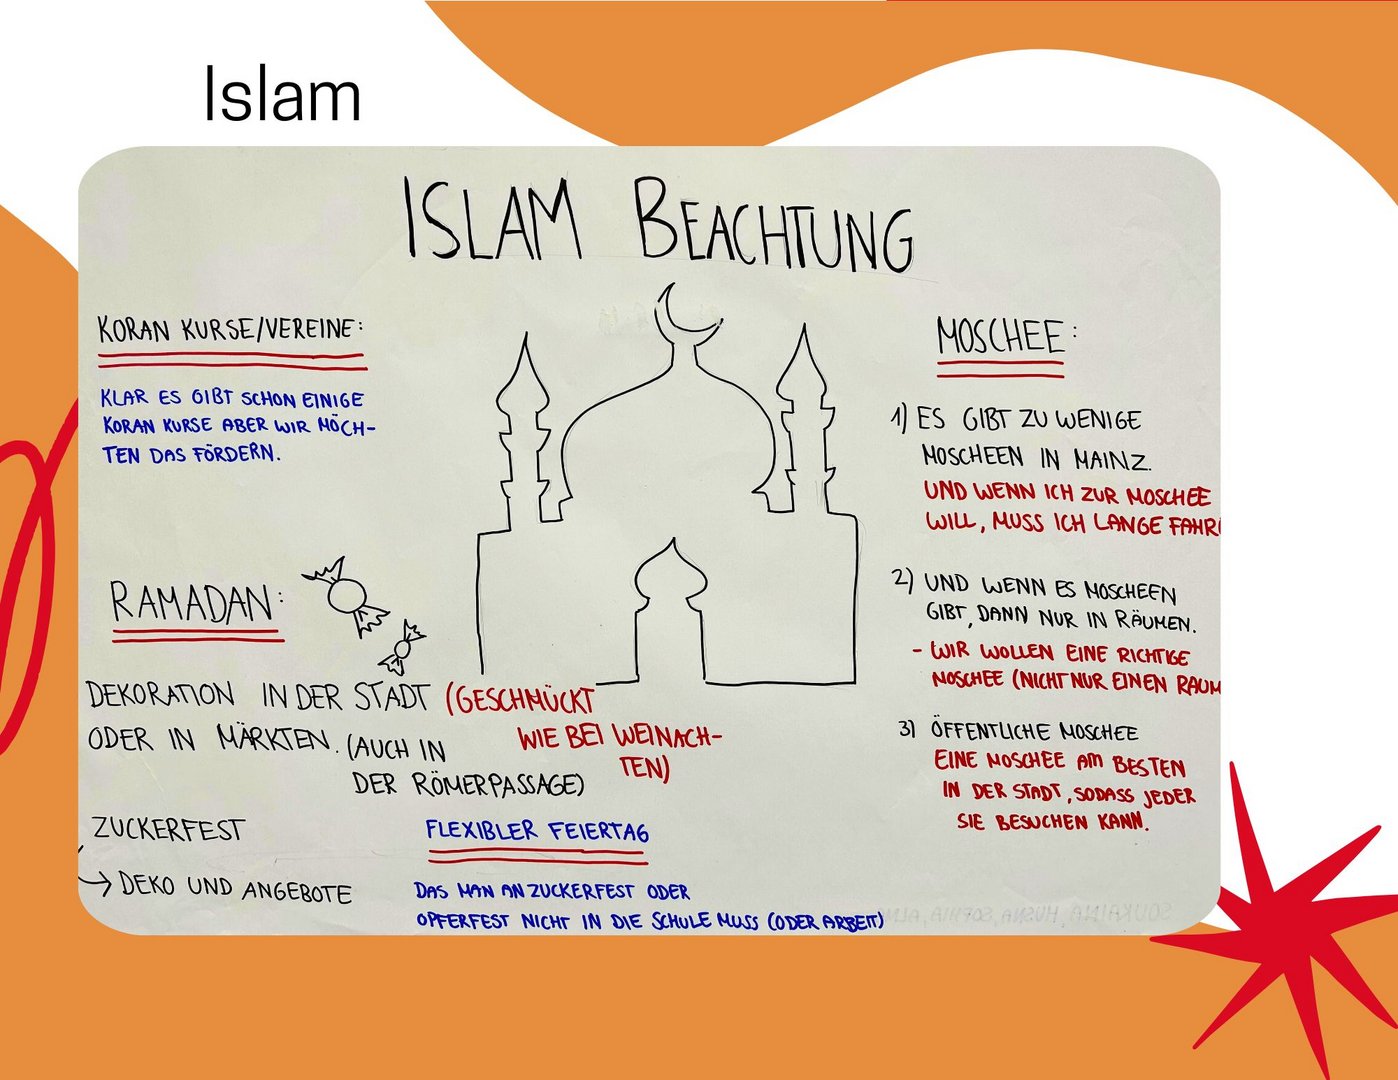 Islam
ISLAM BEACHTUNG
KORAN KURSE/VEREINE:
KLAR ES GIBT SCHON EINIGE
KORAN KURSE ABER WIR MÖCH-
TEN DAS FÖRDERN.
RAMADAN:
DEKORATION IN DER STADT (GESCHMÜCKT
WIE BEI WEINACH-
TEN)
ODER IN MÄRKTEN. (AUCH IN
DER RÖMERPASSAGE)
ZUCKERFEST
→ DEKO UND ANGEBOTE
FLEXIBLER FEIERTAG
DAS MAN AN ZUCKERFEST ODER
OPFERFEST NICHT IN DIE SCHULE MUSS (ODER ARBEIT)
MOSCHEE:
1) ES GIBT ZU WENIGE
MOSCHEEN IN MAINZ.
UND WENN ICH ZUR MOSCHEE
WILL, MUSS ICH LANGE FAHR
2) UND WENN ES MOSCHEEN
GIBT, DANN NUR IN RÄUMEN.
- WIR WOLLEN EINE RICHTIGE
MOSCHEE (NICHT NUR EINEN RAUM
3) ÖFFENTLICHE MOSCHEE
EINE MOSCHEE AM BESTEN
IN DER STADT, SODASS JEDER
SIE BESUCHEN KANN.